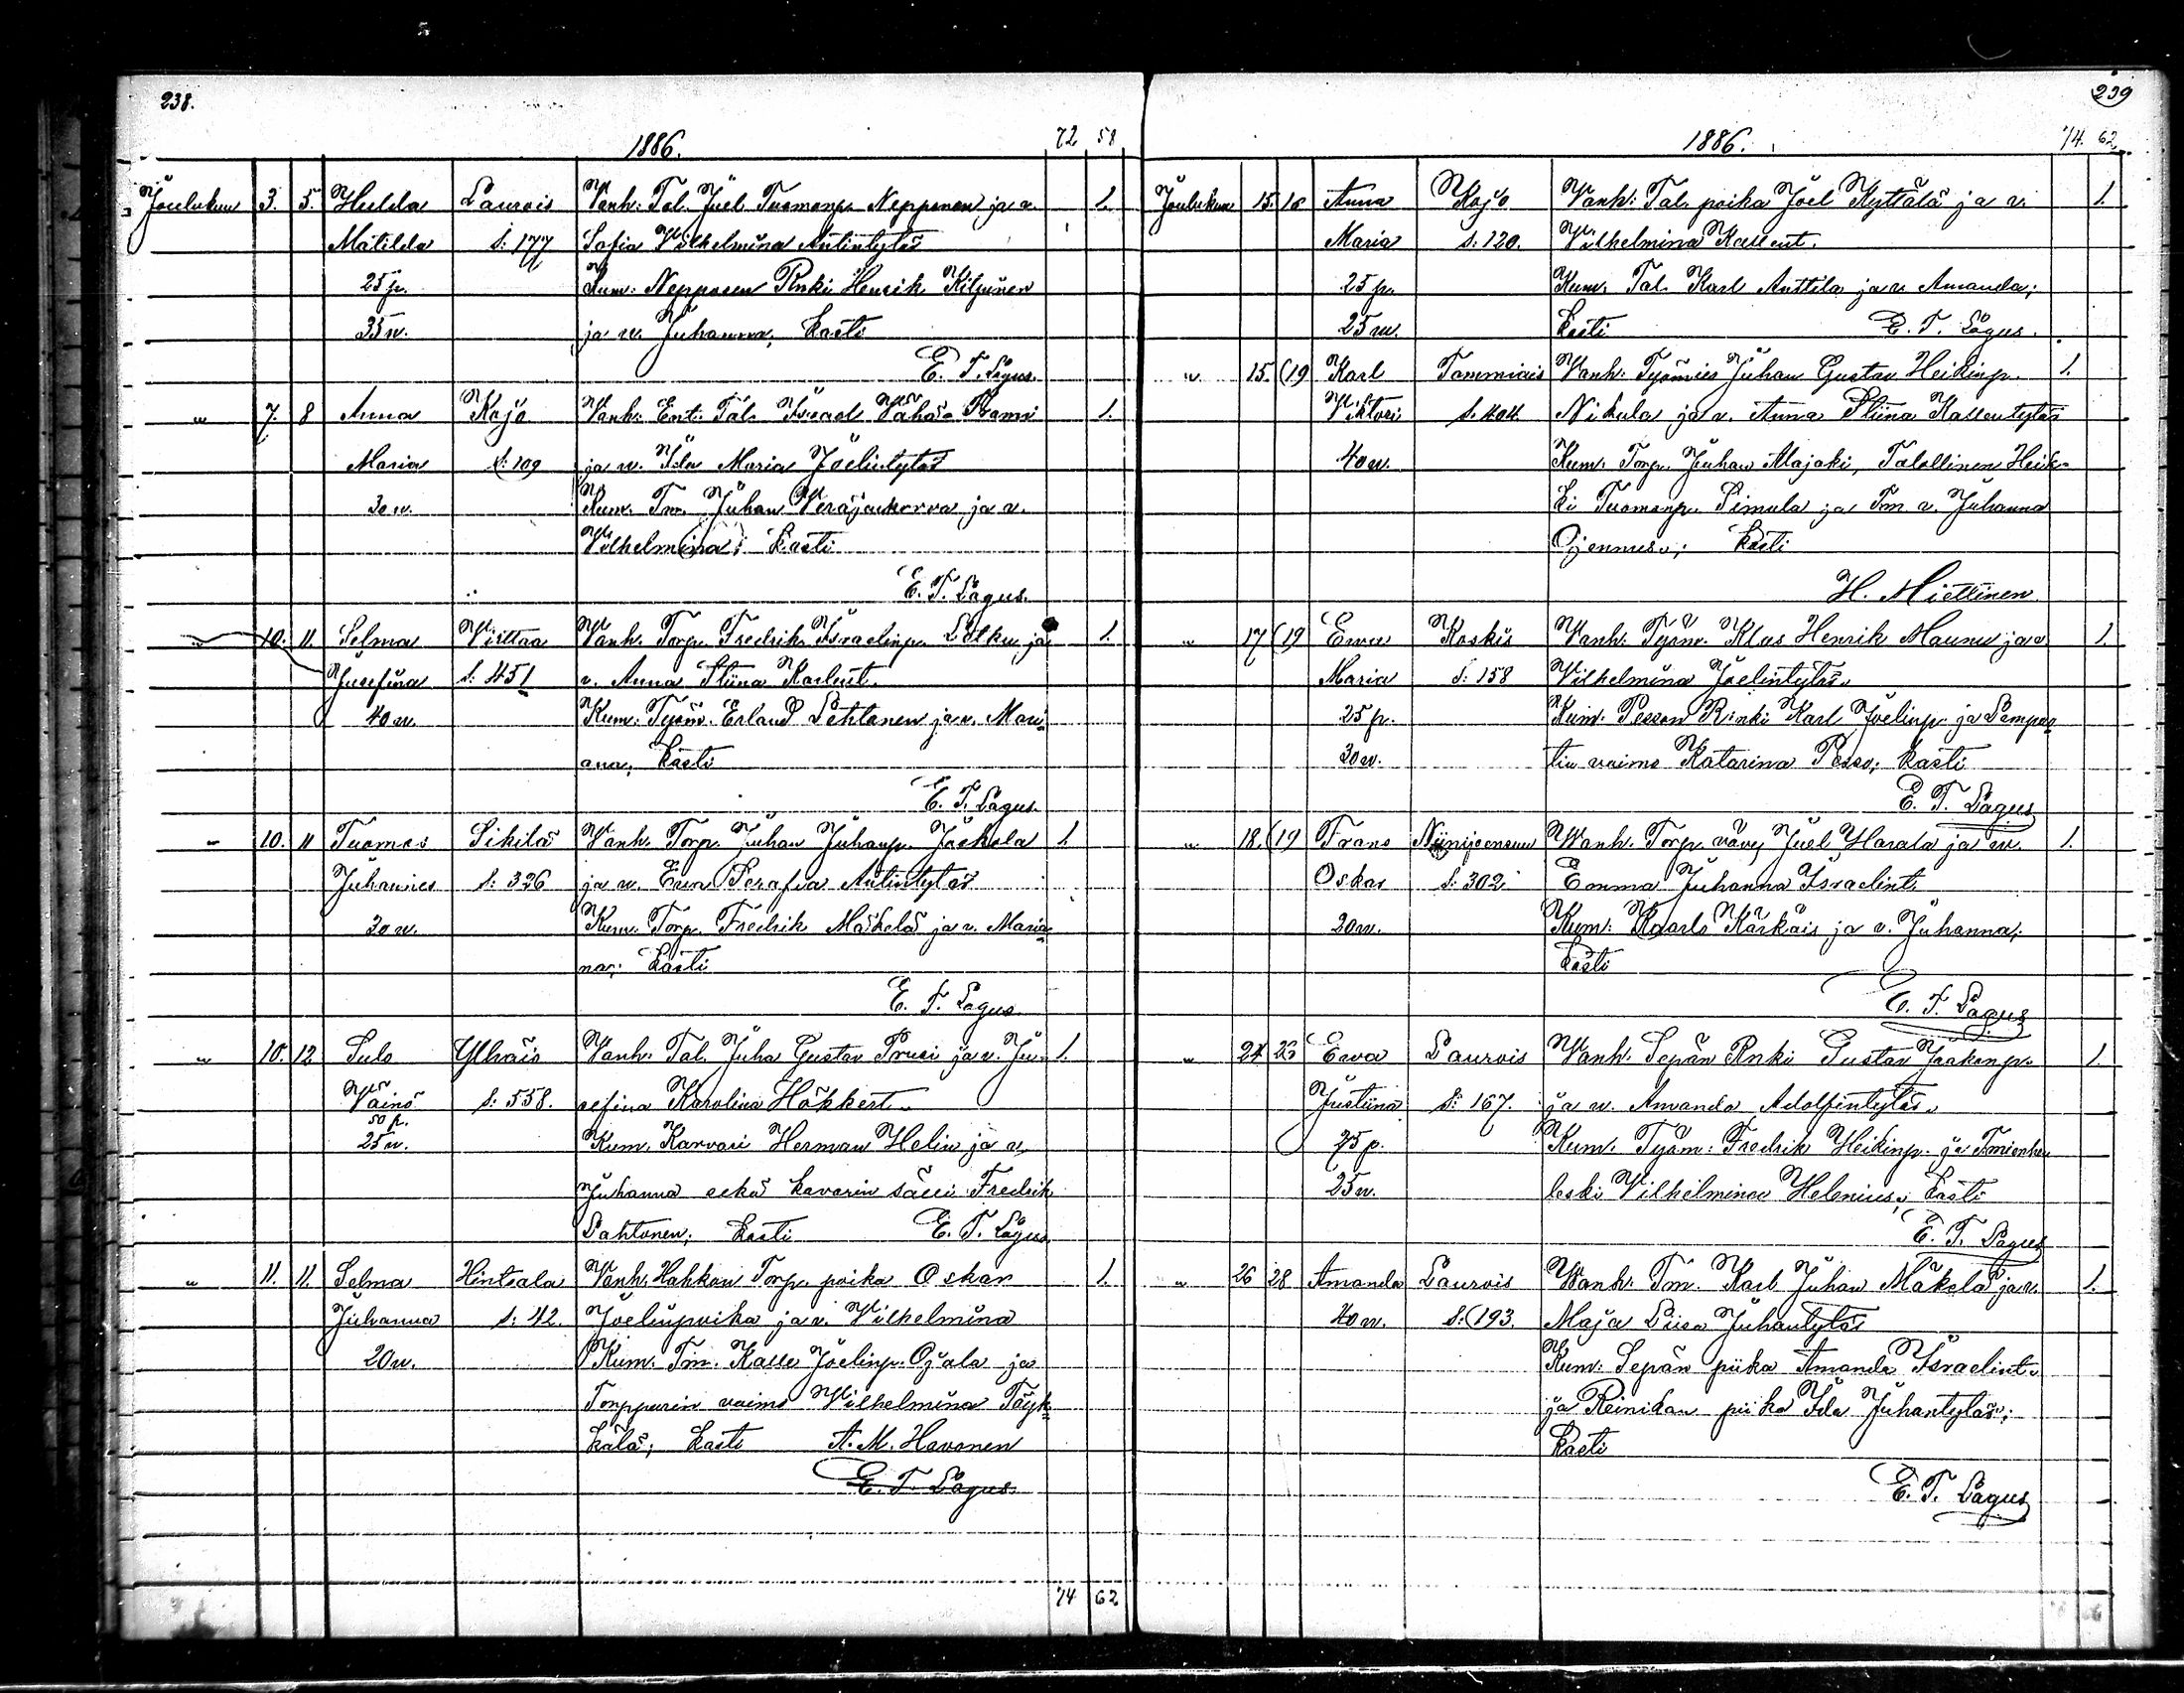 238.
1886. 72 58
Joulukuu 3. 5. Hulda Laurois Vanh. Tal. Juel Tuomanp. Nepponen ja v. 1.
Matilda S: 177 Sofia Vilhelmina Antintytär
25 p. Kum: Nepposen Rnki Henrik Kilpinen
35 w. ja v. Juhanna; kasti
E. T. Lagus.
" 7. 8 Anna Kojo Vanh: Ent. Tal. Israel Vähä-Prami 1.
Maria S: 109 ja v. Ida Maria Joelintytär
30 w. Kum. Tm. Juhan Veräjänkorva ja v.
Vilhelmina; kasti
E. T. Lagus.
" 10. 11. Selma Virttaa Vanh. Torp. Fredrik Israelinp. ja 1.
Josefina S: 451 v. Anna Stiina Karlint.
40 w. Kum: Työm. Erland Lehtonen ja v. Mari
ana; kasti
E. T. Lagus.
" 10. 11 Tuomas Sikilä Vanh. Torp. Juhan Juhanp. Jaakola 1.
Juhannes S: 326 ja v. Eeva Serafia Antintytär
30 w. Kum. Torp. Fredrik Mäkelä ja v. Maria
na; kasti
E. T. Lagus.
" 10. 12 Sulo Ylhäis Vanh. Tal. Juha Gustav Prusi ja v. Jo- 1.
Väinö S: 558. sefina Karolina Hökkert.
50 p.
25 w. Kum. Karvari Herman Helin ja v.
Juhanna sekä karvarin sälli Fredrik
Lahtonen; kasti E. T. Lagus.
" 11. 11. Selma Hintsala Vanh. Hahkan Torp. poika Oskar 1.
Juhanna S: 42. Joelinpoika ja v. Vilhelmina
20 w. Kum. Tm. Kalle Joelinp. Ojala ja
Torpparin vaimo Vilhelmina Täyk
kälä; kasti A. M. Havonen
E. T. Lagus.
74 62
239
1886. 74. 62.
Joulukuu 15. 18 Anna Kojo Vanh: Tal. poika Joel Kyttälä ja v. 1.
Maria S: 120. Vilhelmina Kallent.
25 p. Kum. Tal. Karl Anttila ja v. Amanda;
25 w. kasti E. T. Lagus.
" 15. 19 Karl Tammiais Vanh: Työmies Juhan Gustav Heikinp. 1.
Viktori S. 404. Nikula ja v. Anna Stiina Kallentytär
40 w. Kum. Torp. Juhan Alajoki, Talollinen Heik-
ki Tuomanp. Simula ja Tm. v. Juhanna
Ojennus; kasti
H. Miettinen.
" 17 19 Eeva Koskis Vanh: Työm. Klas Henrik Maunu ja v. 1.
Maria S: 158 Vilhelmina Joelintytär.
25 p. Kum. Pesson Rinki Karl Joelinp. ja Lampuo
30 w. tin vaimo Katarina Pesso; kasti
E. T. Lagus
" 18. 19 Frans Niinijoensuu Vanh. Torp. vävy Juel Harala ja v. 1.
Oskar S: 302 Emma Juhanna Israelint.
20 w. Kum: Kaarlo Kärkäis ja v. Juhanna;
kasti
E. T. Lagus
" 24 26 Eeva Laurois Vanh. Sepän Rnki Gustav Jaakonp. 1.
Justiina S: 167. ja v. Amanda Adolfintytär.
75 p. Kum. Työm: Fredrik Heikinp. ja Tmiehen
25 w. leski Vilhelmina Helenius; kasti
E. T. Lagus
" 26 28 Amanda Laurois Vanh: Tm. Karl Juhan Mäkelä ja v. 1.
40 w. S: 193. Maja Liisa Juhantytär
Kum: Sepän piika Amanda Israelint.
ja Reinikan piika Ida Juhantytär;
kasti
E. T. Lagus